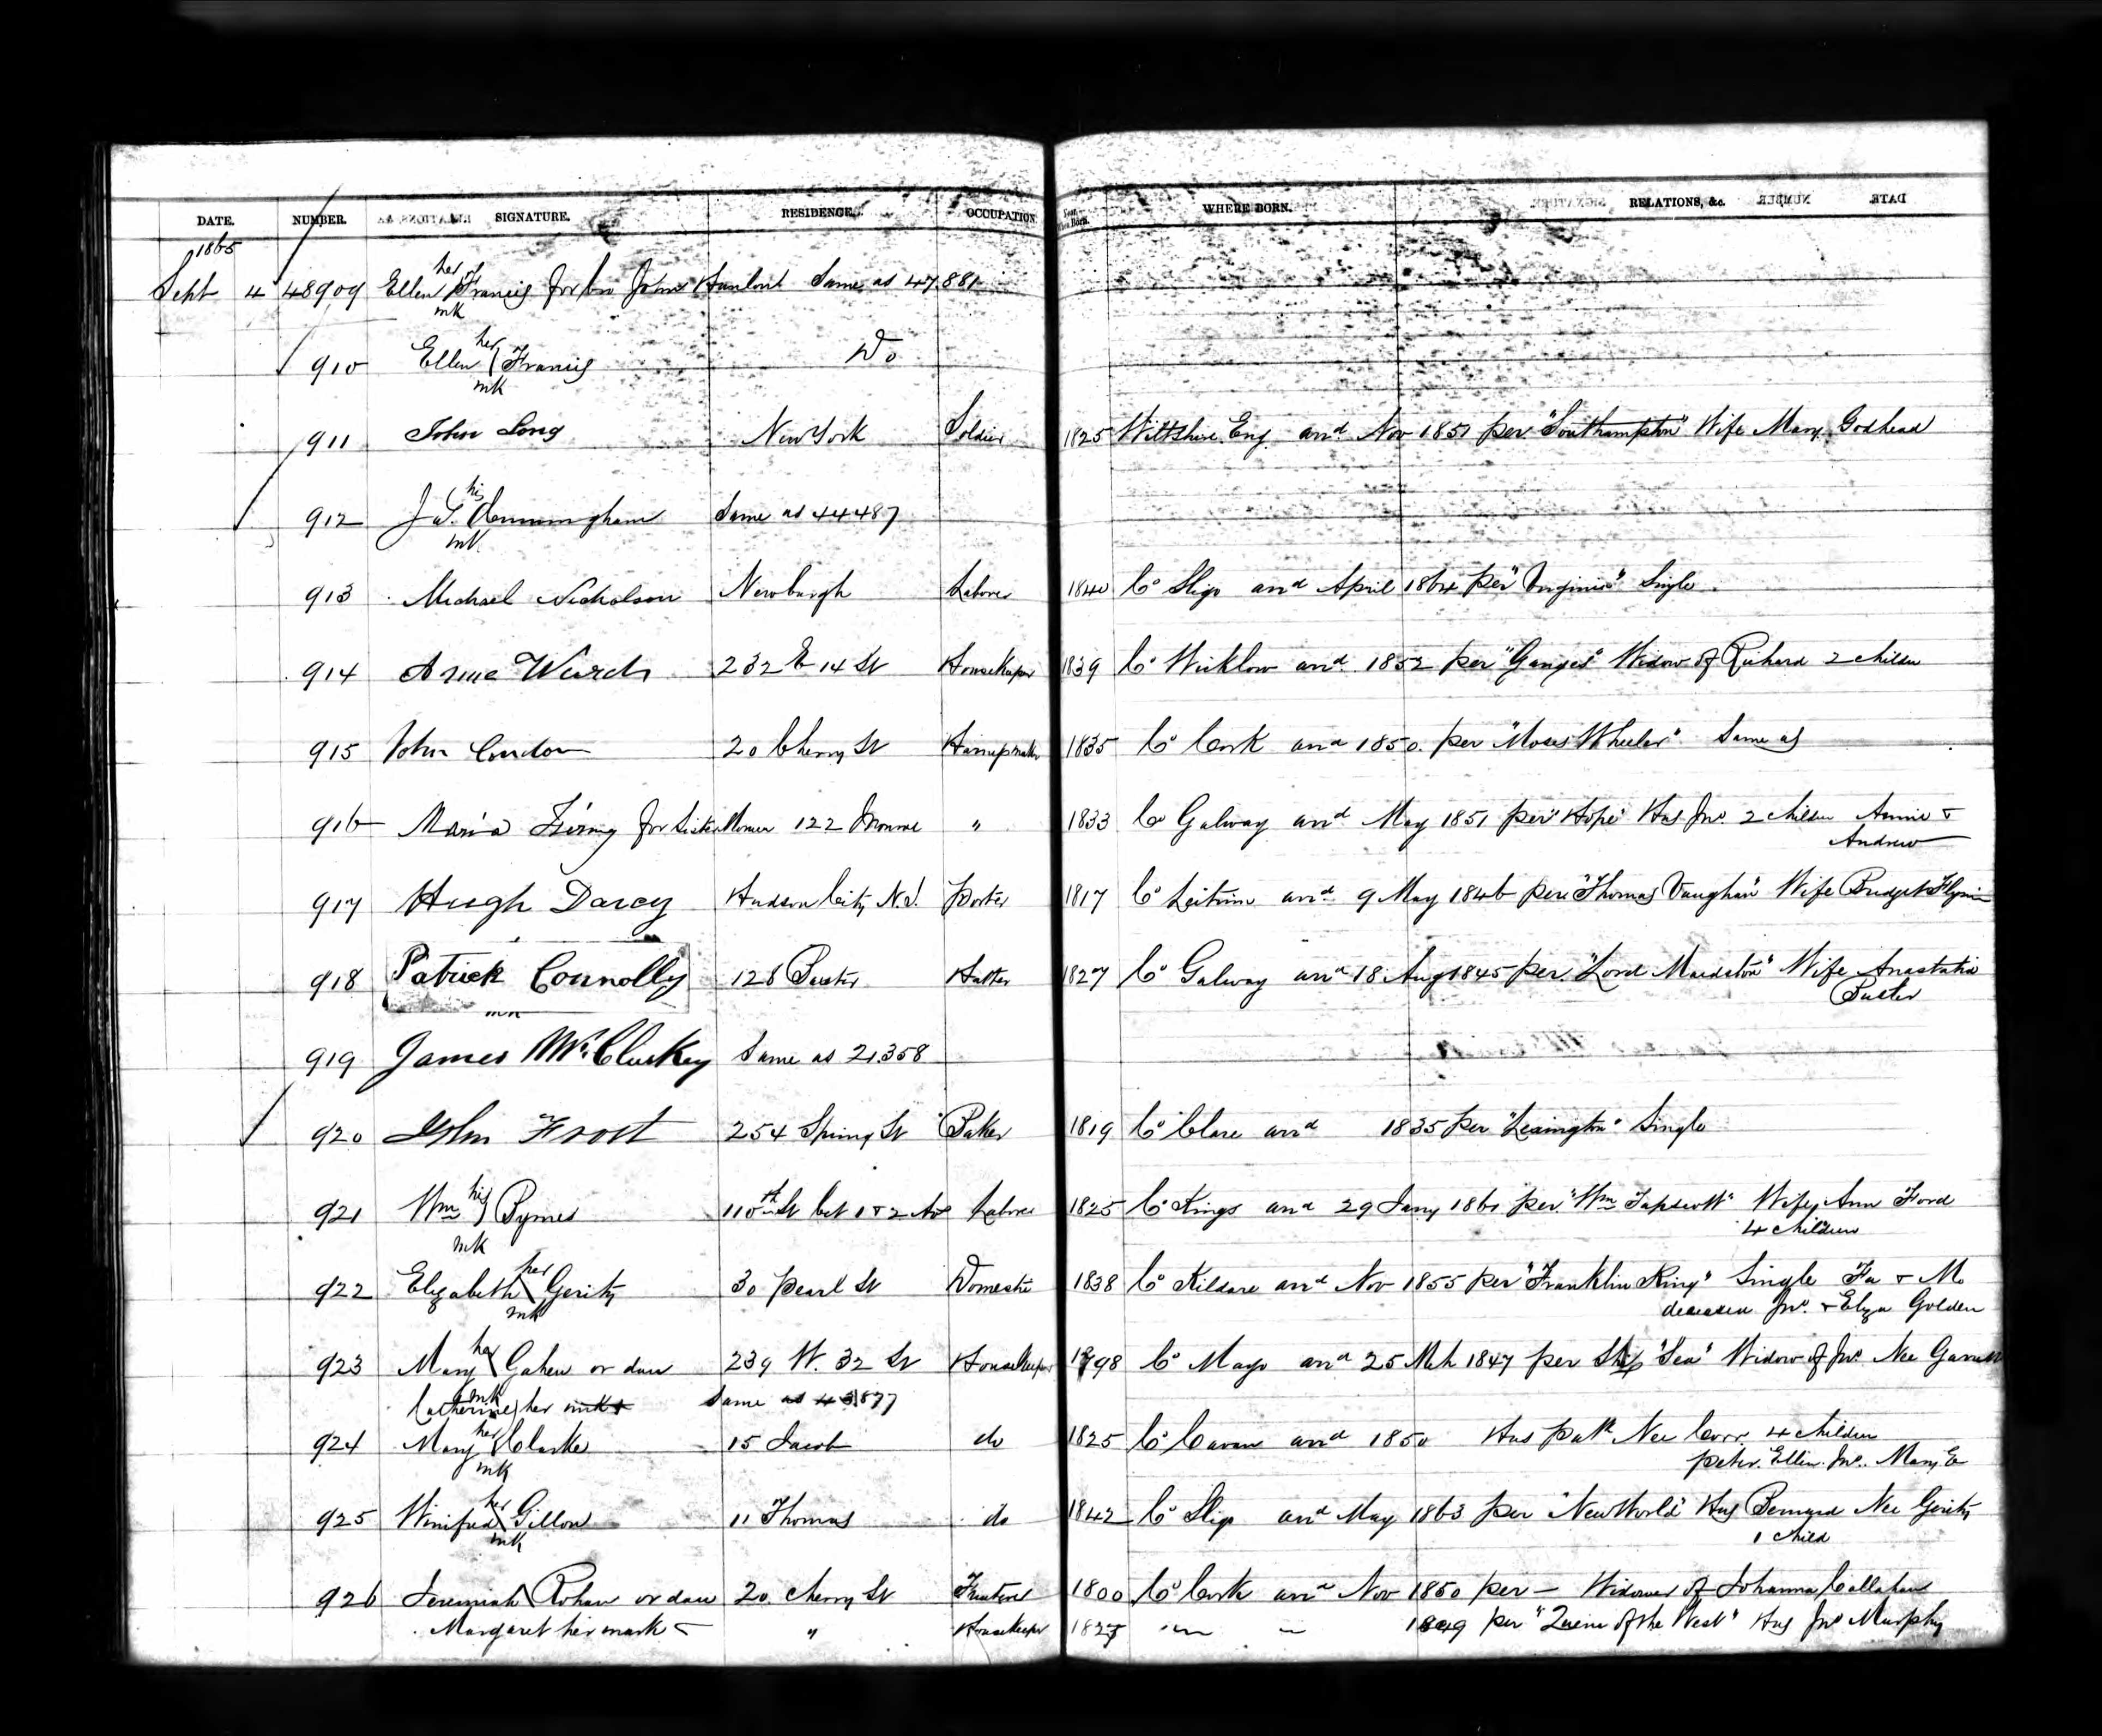 DATE. NUMBER. SIGNATURE. RESIDENCE. OCCUPATION Year When Born. WHERE BORN. RELATIONS, &c.
1865
her
Sept 4 48909 Ellen Francis for bro John Same as 47881
mk
her
910 Ellen Francis Do
mk
911 John Long New York Soldier 1825 Wiltshire Eng. arrd Nov 1851 per "Southampton" Wife Mary Godhead
his
912 J W. Cunningham Same as 44487
mk
913 Michael Nicholson Newburgh Laborer 1840 Co Sligo arrd April 1864 per "Virginia" Single
914 232 E 14 St Housekeeper 1839 Co Wicklow arrd 1852 per "Ganges" Widow of Richard 2 children
915 John Condon 20 Cherry St 1835 Co Cork arrd 1850 per "Moses Wheeler" Same as
916 Maria for Sister 122 Monroe " 1833 Co Galway arrd May 1851 per "Hope" Hus Jno. 2 children Annie &
Andrew
917 Hugh Darcy Hudson City N.J. Porter 1817 Co Leitrim arrd 9 May 1846 per "Thomas Vaughan" Wife Bridget Flynn
918 Patrick Connolly 128 Baxter Hatter 1827 Co Galway arrd 18 Aug 1845 per "Lord Maidstone" Wife Anastatia
Butler
919 James McCluskey Same as 21.358
920 John Frost 254 Spring St Baker 1819 Co Clare arrd 1835 per "Lexington" Single
his
921 Wm Byrnes 110th St bet 1 & 2 Ave Laborer 1825 Co Kings arrd 29 Jany 1861 per "Wm Tapscott" Wife Ann Ford
mk 4 children
her
922 Elizabeth Gerity 30 Pearl St Domestic 1838 Co Kildare arrd Nov 1855 per "Franklin King" Single Fa & Mo
mk deceased Jno. & Eliza Golden
her
923 Mary Gahen or dau 239 W. 32 St Housekeeper 1798 Co Mayo arrd 25 Mch 1847 per Ship "Sea" Widow of Jno Nee
mk
Catherine her mark + Same as
her
924 Mary Clarke 15 Jacob do 1825 Co Cavan arrd 1850 Hus Patk Nee Corr 4 children
mk Peter. Ellen. Jno. Mary E
her
925 Winifred Gillon 11 Thomas do 1842 Co Sligo arrd May 1863 per "New World" Hus Bernard Nee Gerity
mk 1 child
926 Jeremiah Rohan or dau 20 Cherry St 1800 Co Cork arrd Nov 1850 per — Widower of Johanna Callahan
Margaret her mark " Housekeeper " — 1849 per "Queen of the West" Hus Jno Murphy